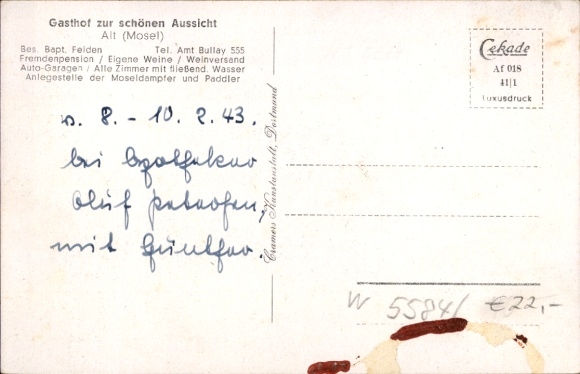 Gasthof zur schönen Aussicht
Alf (Mosel)
Bes. Bapt. Feiden Tel. Amt Bullay 555
Fremdenpension / Eigene Weine / Weinversand
Auto-Garagen / Alle Zimmer mit fließend. Wasser
Anlegestelle der Moseldampfer und Paddler
v. 8. - 10. 2. 43.
bei Apotheker
Oluf Petersen,
mit Günther.
Cramers Kunstanstalt, Dortmund
Cekade
Af 018
41|1
Luxusdruck
W 5584/ €22,-